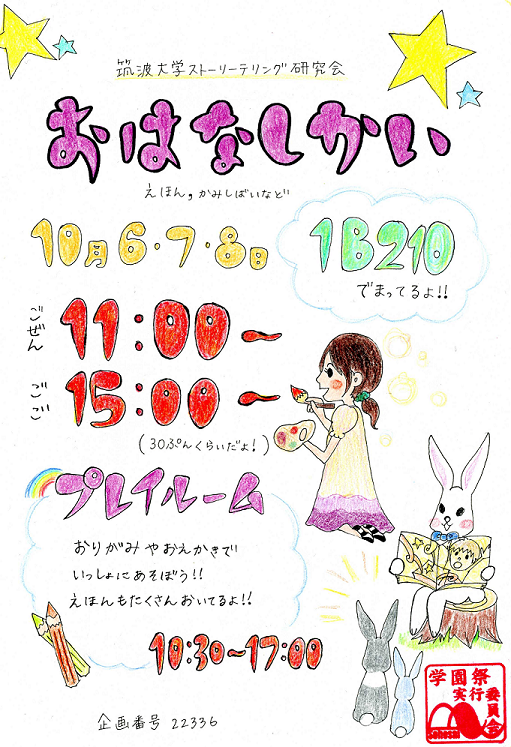 筑波大学ストーリーテリング研究会
おはなしかい
えほん,かみしばいなど
10月6・7・8日
1B210
でまってるよ!!
ごぜん
11:00~
ごご
15:00~
(30ぷんくらいだよ!)
プレイルーム
おりがみやおえかきで
いっしょにあそぼう!!
えほんもたくさんおいてるよ!!
10:30~17:00
企画番号 22336
学園祭
実行委員会
Sohosai